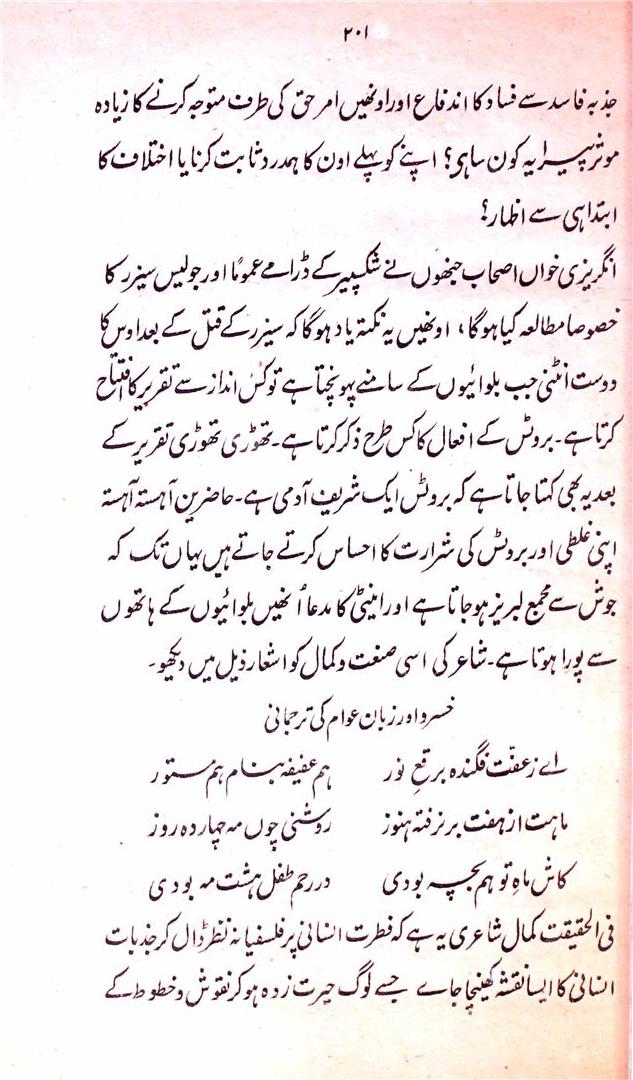 ۲۰۱
جذبہ فاسد سے فساد کا اندفاع اور اونھیں امر حق کی طرف متوجہ کرنے کا زیادہ
موثر پیرایہ کون سا ہی؟ اپنے کو پہلے اون کا ہمدرد ثابت کرنا یا اختلاف کا
ابتدا ہی سے اظہار؟
انگریزی خواں اصحاب جنھوں نے شکسپیر کے ڈرامے عموماً اور جولیس سیزر کا
خصوصا مطالعہ کیا ہوگا، اونھیں یہ نکتہ یاد ہوگا کہ سیزر کے قتل کے بعد اوس کا
دوست انٹنی جب بلوائیوں کے سامنے پہونچتا ہے تو کس انداز سے تقریر کا افتتاح
کرتا ہے۔ بروٹس کے افعال کا کس طرح ذکر کرتا ہے۔ تھوڑی تھوڑی تقریر کے
بعد یہ بھی کہتا جاتا ہے کہ بروٹس ایک شریف آدمی ہے۔ حاضرین آہستہ آہستہ
اپنی غلطی اور بروٹس کی شرارت کا احساس کرتے جاتے ہیں یہاں تک کہ
جوش سے مجمع لبریز ہو جاتا ہے اور اینٹی کا مدعا اُنھیں بلوائیوں کے ہاتھوں
سے پورا ہوتا ہے۔ شاعر کی اسی صنعت و کمال کو اشعار ذیل میں دیکھو۔
خسرو اور زبان عوام کی ترجمانی
اے ز عفّت فگندہ برقعِ نور ہم عفیفہ بنام ہم مستور
ماہت از ہفت بر نرفتہ ہنوز روشنی چوں مہ چہاردہ روز
کاش ماہِ تو ہم بچہ بودی در رحم طفل ہشت مہ بودی
فی الحقیقت کمال شاعری یہ ہے کہ فطرت انسانی پر فلسفیانہ نظر ڈال کر جذبات
انسانی کا ایسا نقشہ کھینچا جاے جسے لوگ حیرت زدہ ہو کر نقوش و خطوط کے